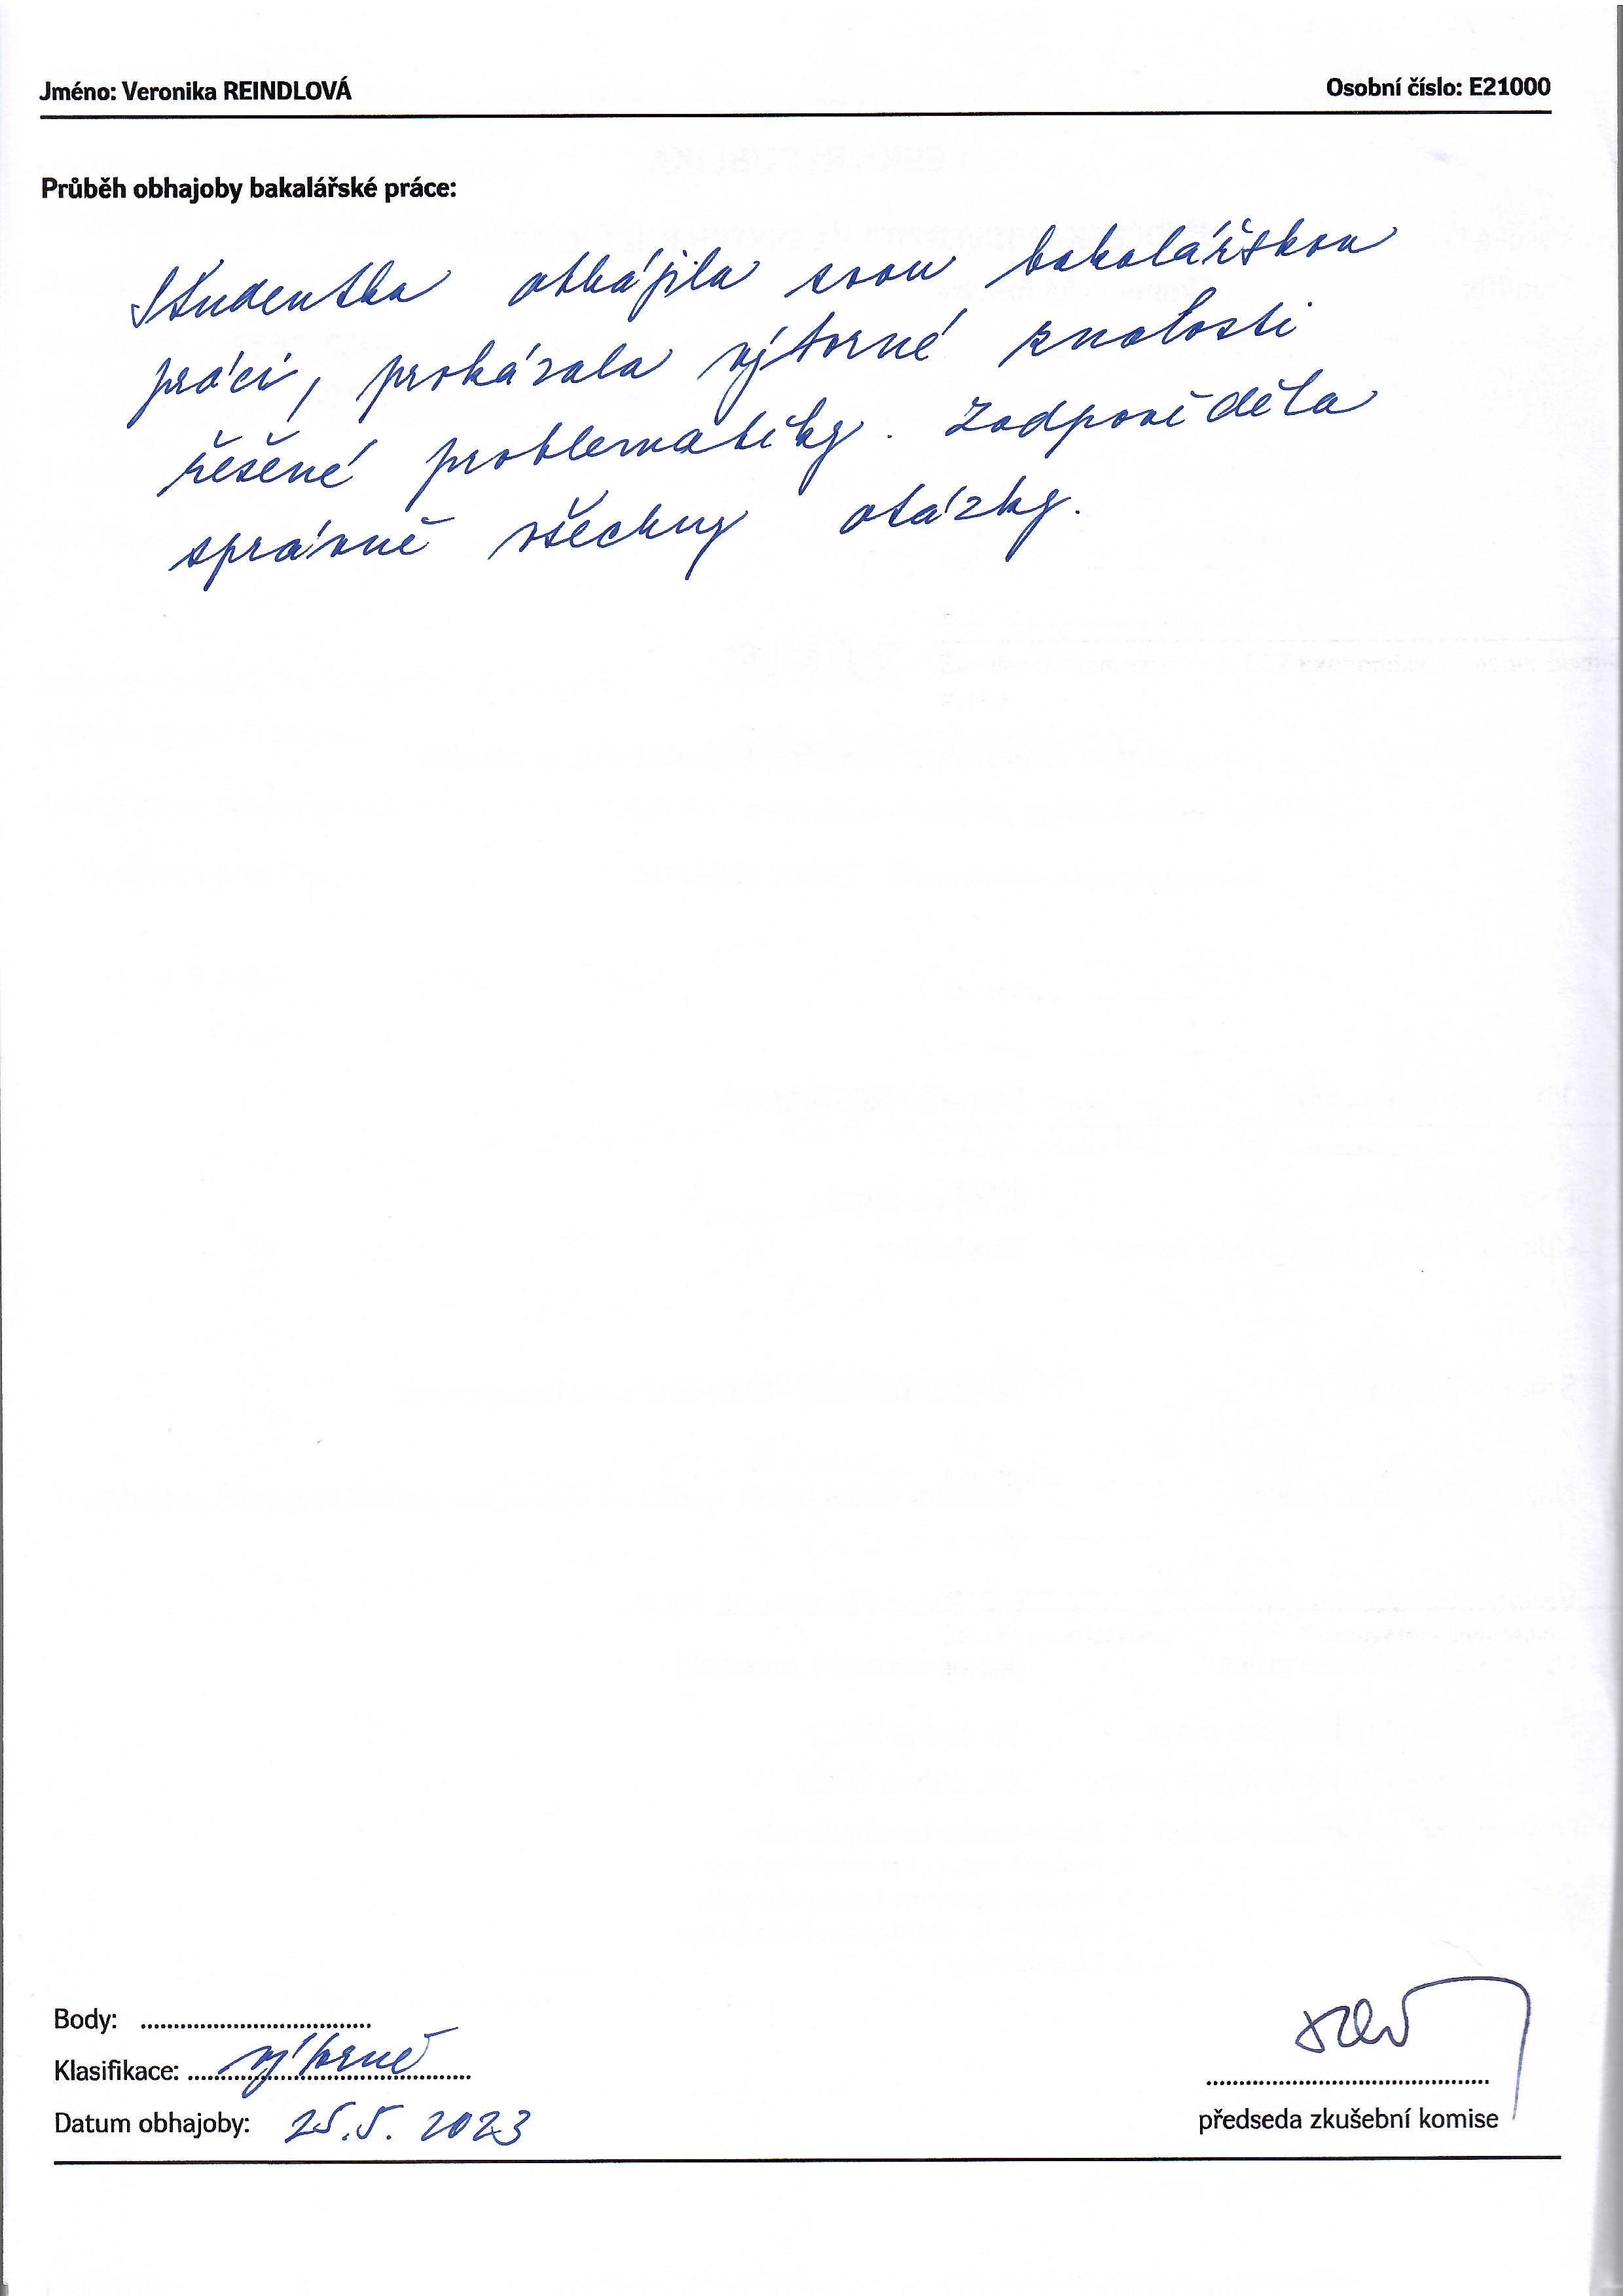 Jméno: Veronika REINDLOVÁ Osobní číslo: E21000
Průběh obhajoby bakalářské práce:
Studentka obhájila svou bakalářskou
práci, prokázala výborné znalosti
řešené problematiky. Zodpověděla
správně všechny otázky.
Body: ...................................
Klasifikace: výborně
Datum obhajoby: 25.5. 2023
předseda zkušební komise